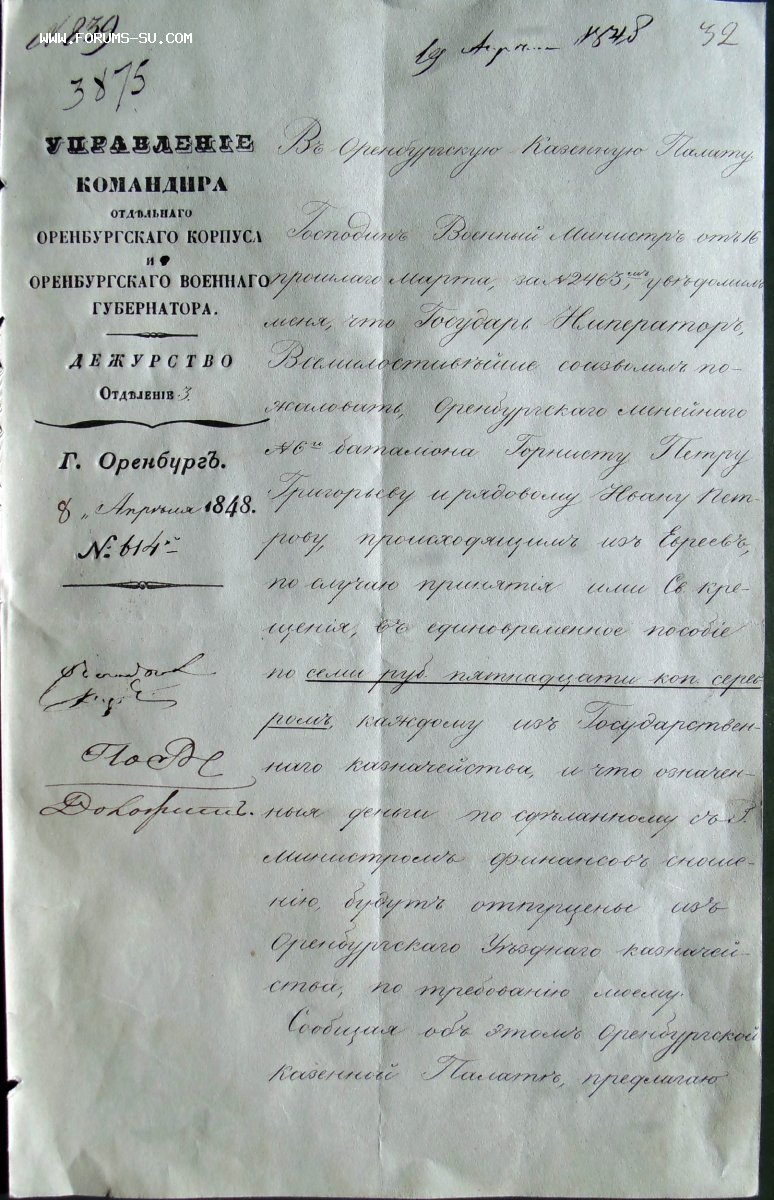 № 839
WWW.FORUMS-SU.COM
3875
19 Апр 1848
32
УПРАВЛЕНІЕ
КОМАНДИРА
ОТДѢЛЬНАГО
ОРЕНБУРГСКАГО КОРПУСА
И
ОРЕНБУРГСКАГО ВОЕННАГО
ГУБЕРНАТОРА.
ДЕЖУРСТВО
ОТДѢЛЕНІЕ 3.
Г. Оренбургъ.
8 „ Апрѣля 1848.
№ 614
Въ Оренбургскую Казенную Палату.
Господинъ Военный Министръ отъ 16
прошлаго Марта, за № 2463, увѣдомилъ
меня, что Государь Императоръ,
Всемилостивѣйше соизволилъ по-
жаловать, Оренбургскаго линейнаго
№ 6го баталіона Горнисту Петру
Григорьеву и рядовому Ивану Пет-
рову, происходящимъ изъ Евреевъ,
по случаю принятія ими Св. кре-
щенія, въ единовременное пособіе
по семи руб. пятнадцати коп. среб-
ромъ, каждому изъ Государствен-
наго казначейства, и что означен-
ныя деньги по сдѣланному съ Г.
Министромъ финансовъ сноше-
нію, будутъ отпущены изъ
Оренбургскаго Уѣзднаго казначей-
ства, по требованію моему.
Сообщая объ этомъ Оренбургской
казенной Палатѣ, предлагаю